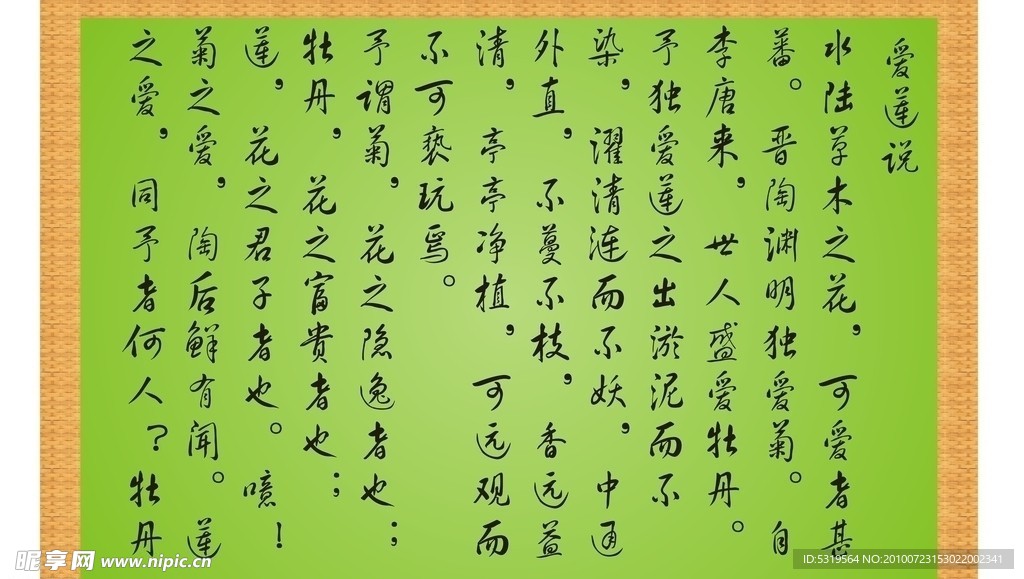 爱莲说
水陆草木之花，可爱者甚
蕃。晋陶渊明独爱菊。自
李唐来，世人盛爱牡丹。
予独爱莲之出淤泥而不
染，濯清涟而不妖，中通
外直，不蔓不枝，香远益
清，亭亭净植，可远观而
不可亵玩焉。
予谓菊，花之隐逸者也；
牡丹，花之富贵者也；
莲，花之君子者也。噫！
菊之爱，陶后鲜有闻。莲
之爱，同予者何人？牡丹
昵享网 www.nipic.cn
ID:5319564 NO:20100723153022002341